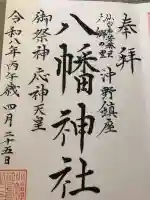 奉拝
沖野鎮座
八幡神社
御祭神 応神天皇
令和八年丙午歳 四月二十五日